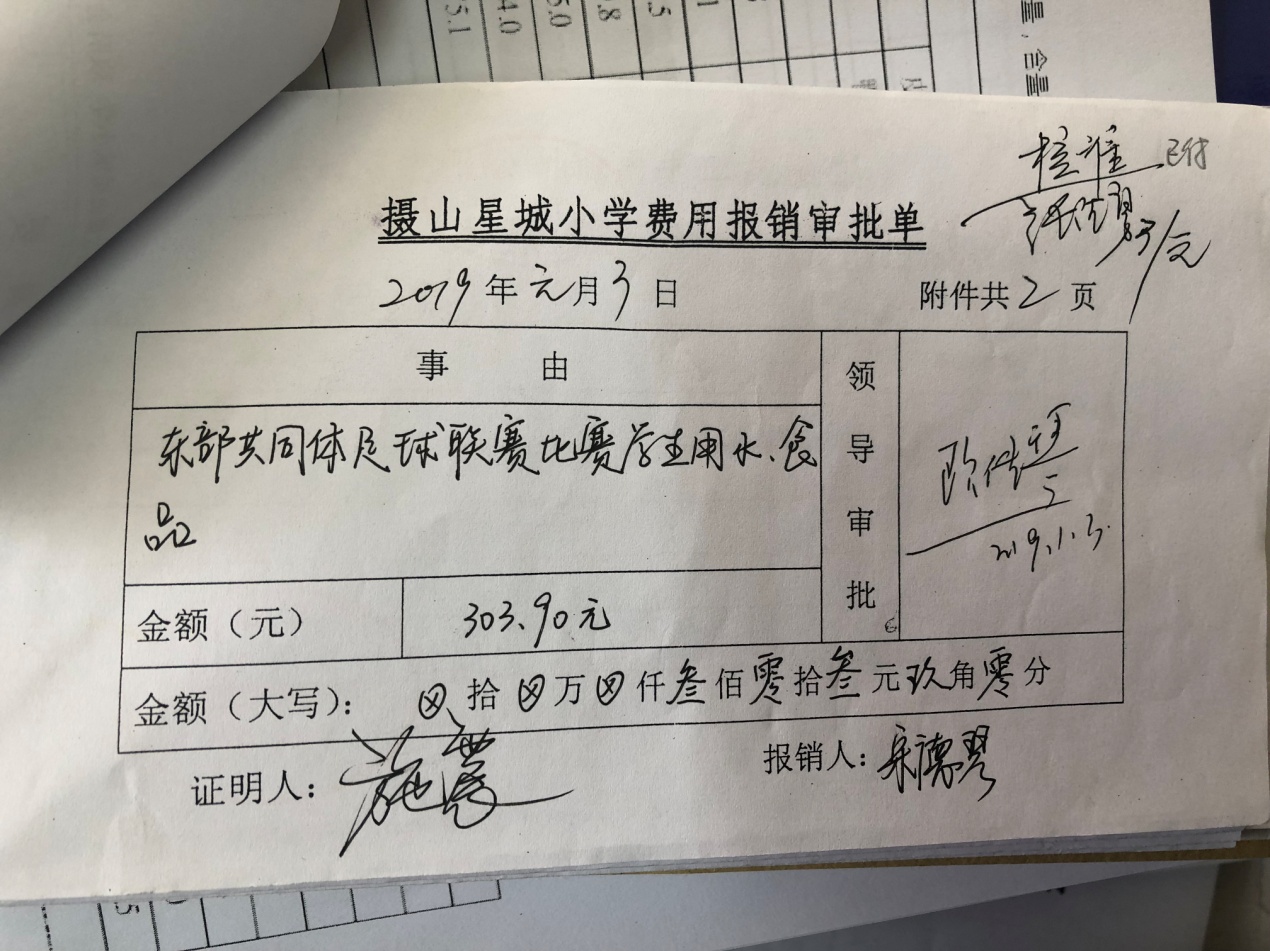 核准 已付
摄山星城小学费用报销审批单
3/元
2019年元月3日
附件共2页
事由
东部共同体足球联赛比赛学生用水、食
品
领导审批
2019.1.3.
金额（元）
303.90元
金额（大写）：⊗拾⊗万⊗仟叁佰零拾叁元玖角零分
证明人：
报销人：
5.1
4.0
5.0